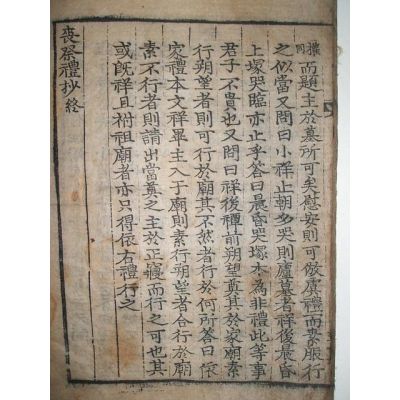 攘同而題主於墓所可矣慰安則可倣虞禮而素服行
之似當又問曰小祥止朝夕哭則廬墓者祥後晨昏
上塚哭臨亦止乎答曰晨昏哭塚本為非禮此等事
君子不貴也又問曰祥後禫前朔望奠其於家廟素
行朔望者則可行於廟其不然者行於何所答曰依
家禮本文祥畢主入于廟則素行朔望者合行於廟
素不行者則請出當奠之主於正寢而行之可也其
或既祥且祔祖廟者亦只得依右禮行之
喪祭禮抄 終